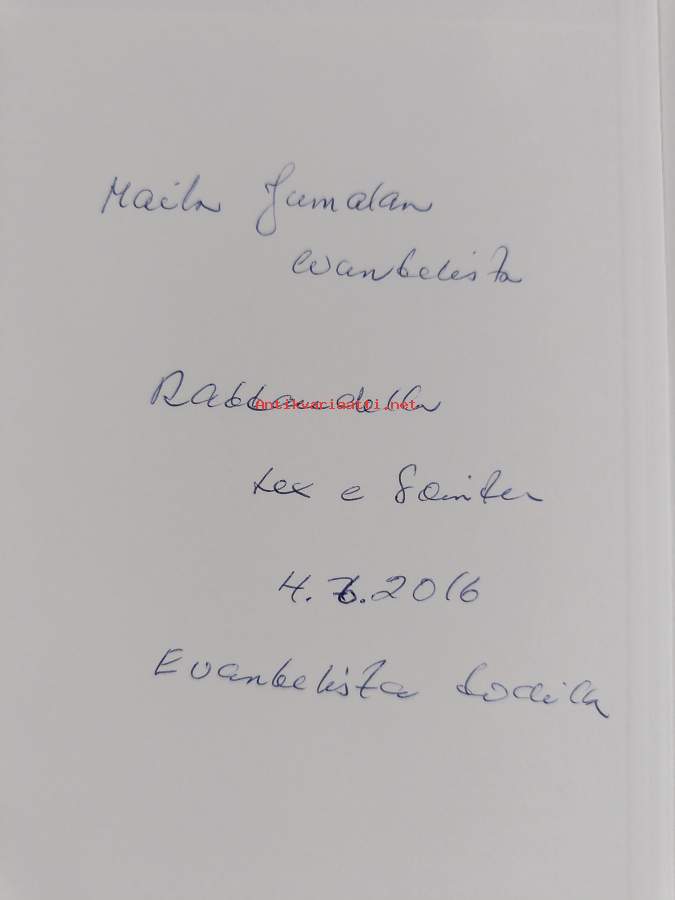 Maila Jumalan
evankelista
Rakkaudella
Antikvariaatti.net
4.6.2016
Evankelista